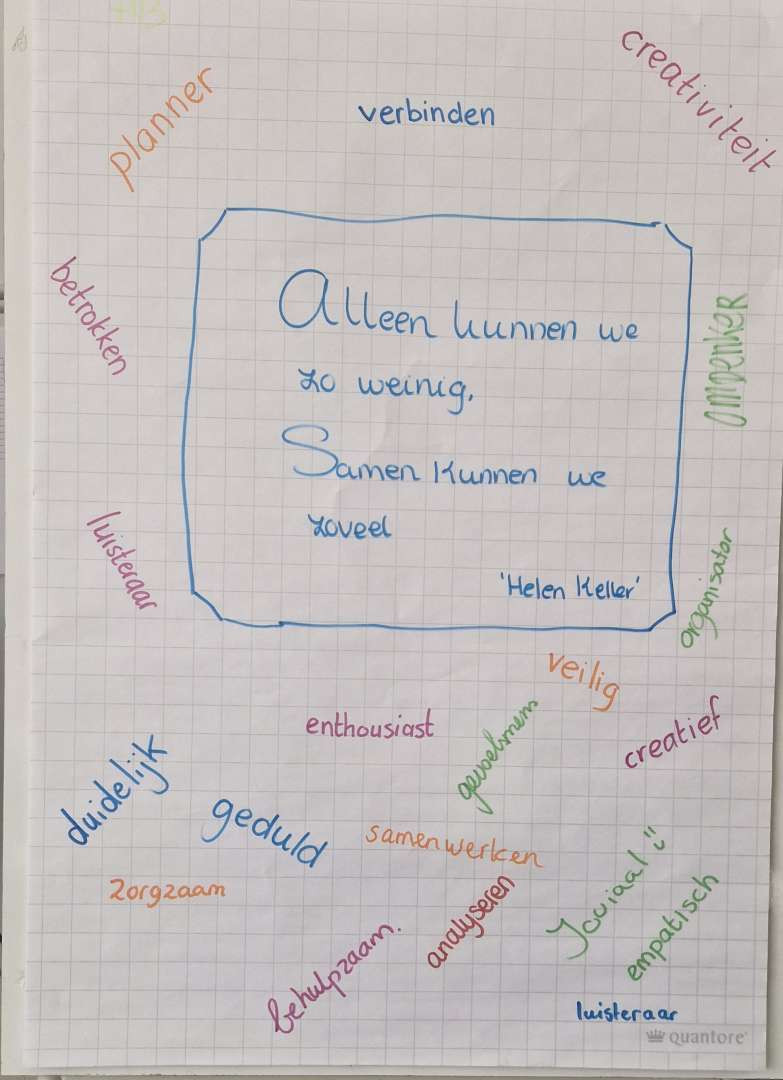 creativiteit
planner
verbinden
betrokken
Alleen kunnen we
zo weinig.
Samen kunnen we
zoveel
'Helen Keller'
omdenker
luisteraar
organisator
veilig
enthousiast
creatief
duidelijk
geduld
samenwerken
zorgzaam
analyseren
Joviaal
empatisch
behulpzaam.
luisteraar
quantore